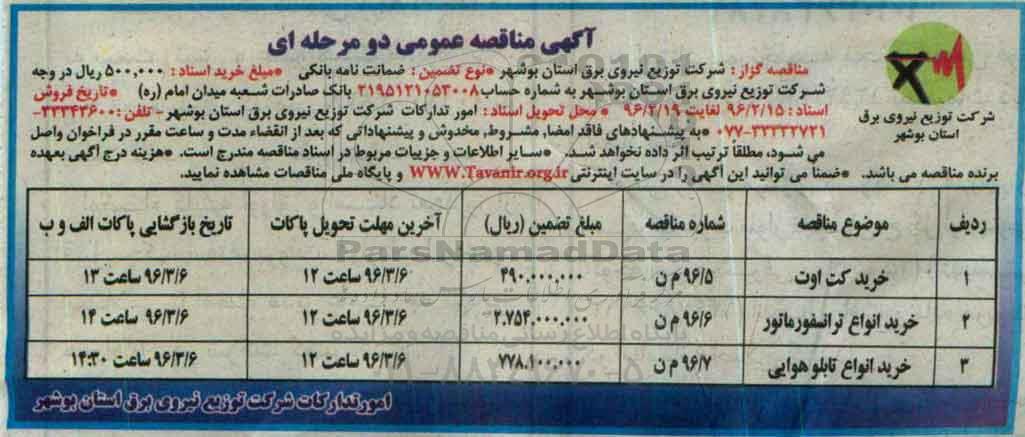 آگهی مناقصه عمومی دو مرحله ای
شرکت توزیع نیروی برق
استان بوشهر
مناقصه گزار: شرکت توزیع نیروی برق استان بوشهر *نوع تضمین: ضمانت نامه بانکی *مبلغ خرید اسناد: ۵۰۰,۰۰۰ ریال در وجه
شرکت توزیع نیروی برق استان بوشهر به شماره حساب ۲۱۹۵۱۲۱۰۵۳۰۰۸ بانک صادرات شعبه میدان امام (ره) *تاریخ فروش
اسناد: ۹۶/۲/۱۵ لغایت ۹۶/۲/۱۹ * محل تحویل اسناد: امور تدارکات شرکت توزیع نیروی برق استان بوشهر - تلفن: ۳۳۳۴۳۶۰۰-
۰۷۷-۳۳۳۳۲۷۲۱ *به پیشنهادهای فاقد امضا, مشروط, مخدوش و پیشنهاداتی که بعد از انقضاء مدت و ساعت مقرر در فراخوان واصل
می شود، مطلقاً ترتیب اثر داده نخواهد شد. *سایر اطلاعات و جزییات مربوط در اسناد مناقصه مندرج است. *هزینه درج آگهی بعهده
برنده مناقصه می باشد. *ضمناً می توانید این آگهی را در سایت اینترنتی WWW.Tavanir.org.ir و پایگاه ملی مناقصات مشاهده نمایید.
ردیف موضوع مناقصه شماره مناقصه مبلغ تضمین (ریال) آخرین مهلت تحویل پاکات تاریخ بازگشایی پاکات الف و ب
۱ خرید کت اوت ۹۶/۵ م ن ۴۹۰.۰۰۰.۰۰۰ ۹۶/۳/۶ ساعت ۱۲ ۹۶/۳/۶ ساعت ۱۳
۲ خرید انواع ترانسفورماتور ۹۶/۶ م ن ۲.۷۵۴.۰۰۰.۰۰۰ ۹۶/۳/۶ ساعت ۱۲ ۹۶/۳/۶ ساعت ۱۴
۳ خرید انواع تابلو هوایی ۹۶/۷ م ن ۷۷۸.۱۰۰.۰۰۰ ۹۶/۳/۶ ساعت ۱۲ ۹۶/۳/۶ ساعت ۱۴:۳۰
امور تدارکات شرکت توزیع نیروی برق استان بوشهر
ParsNamadData